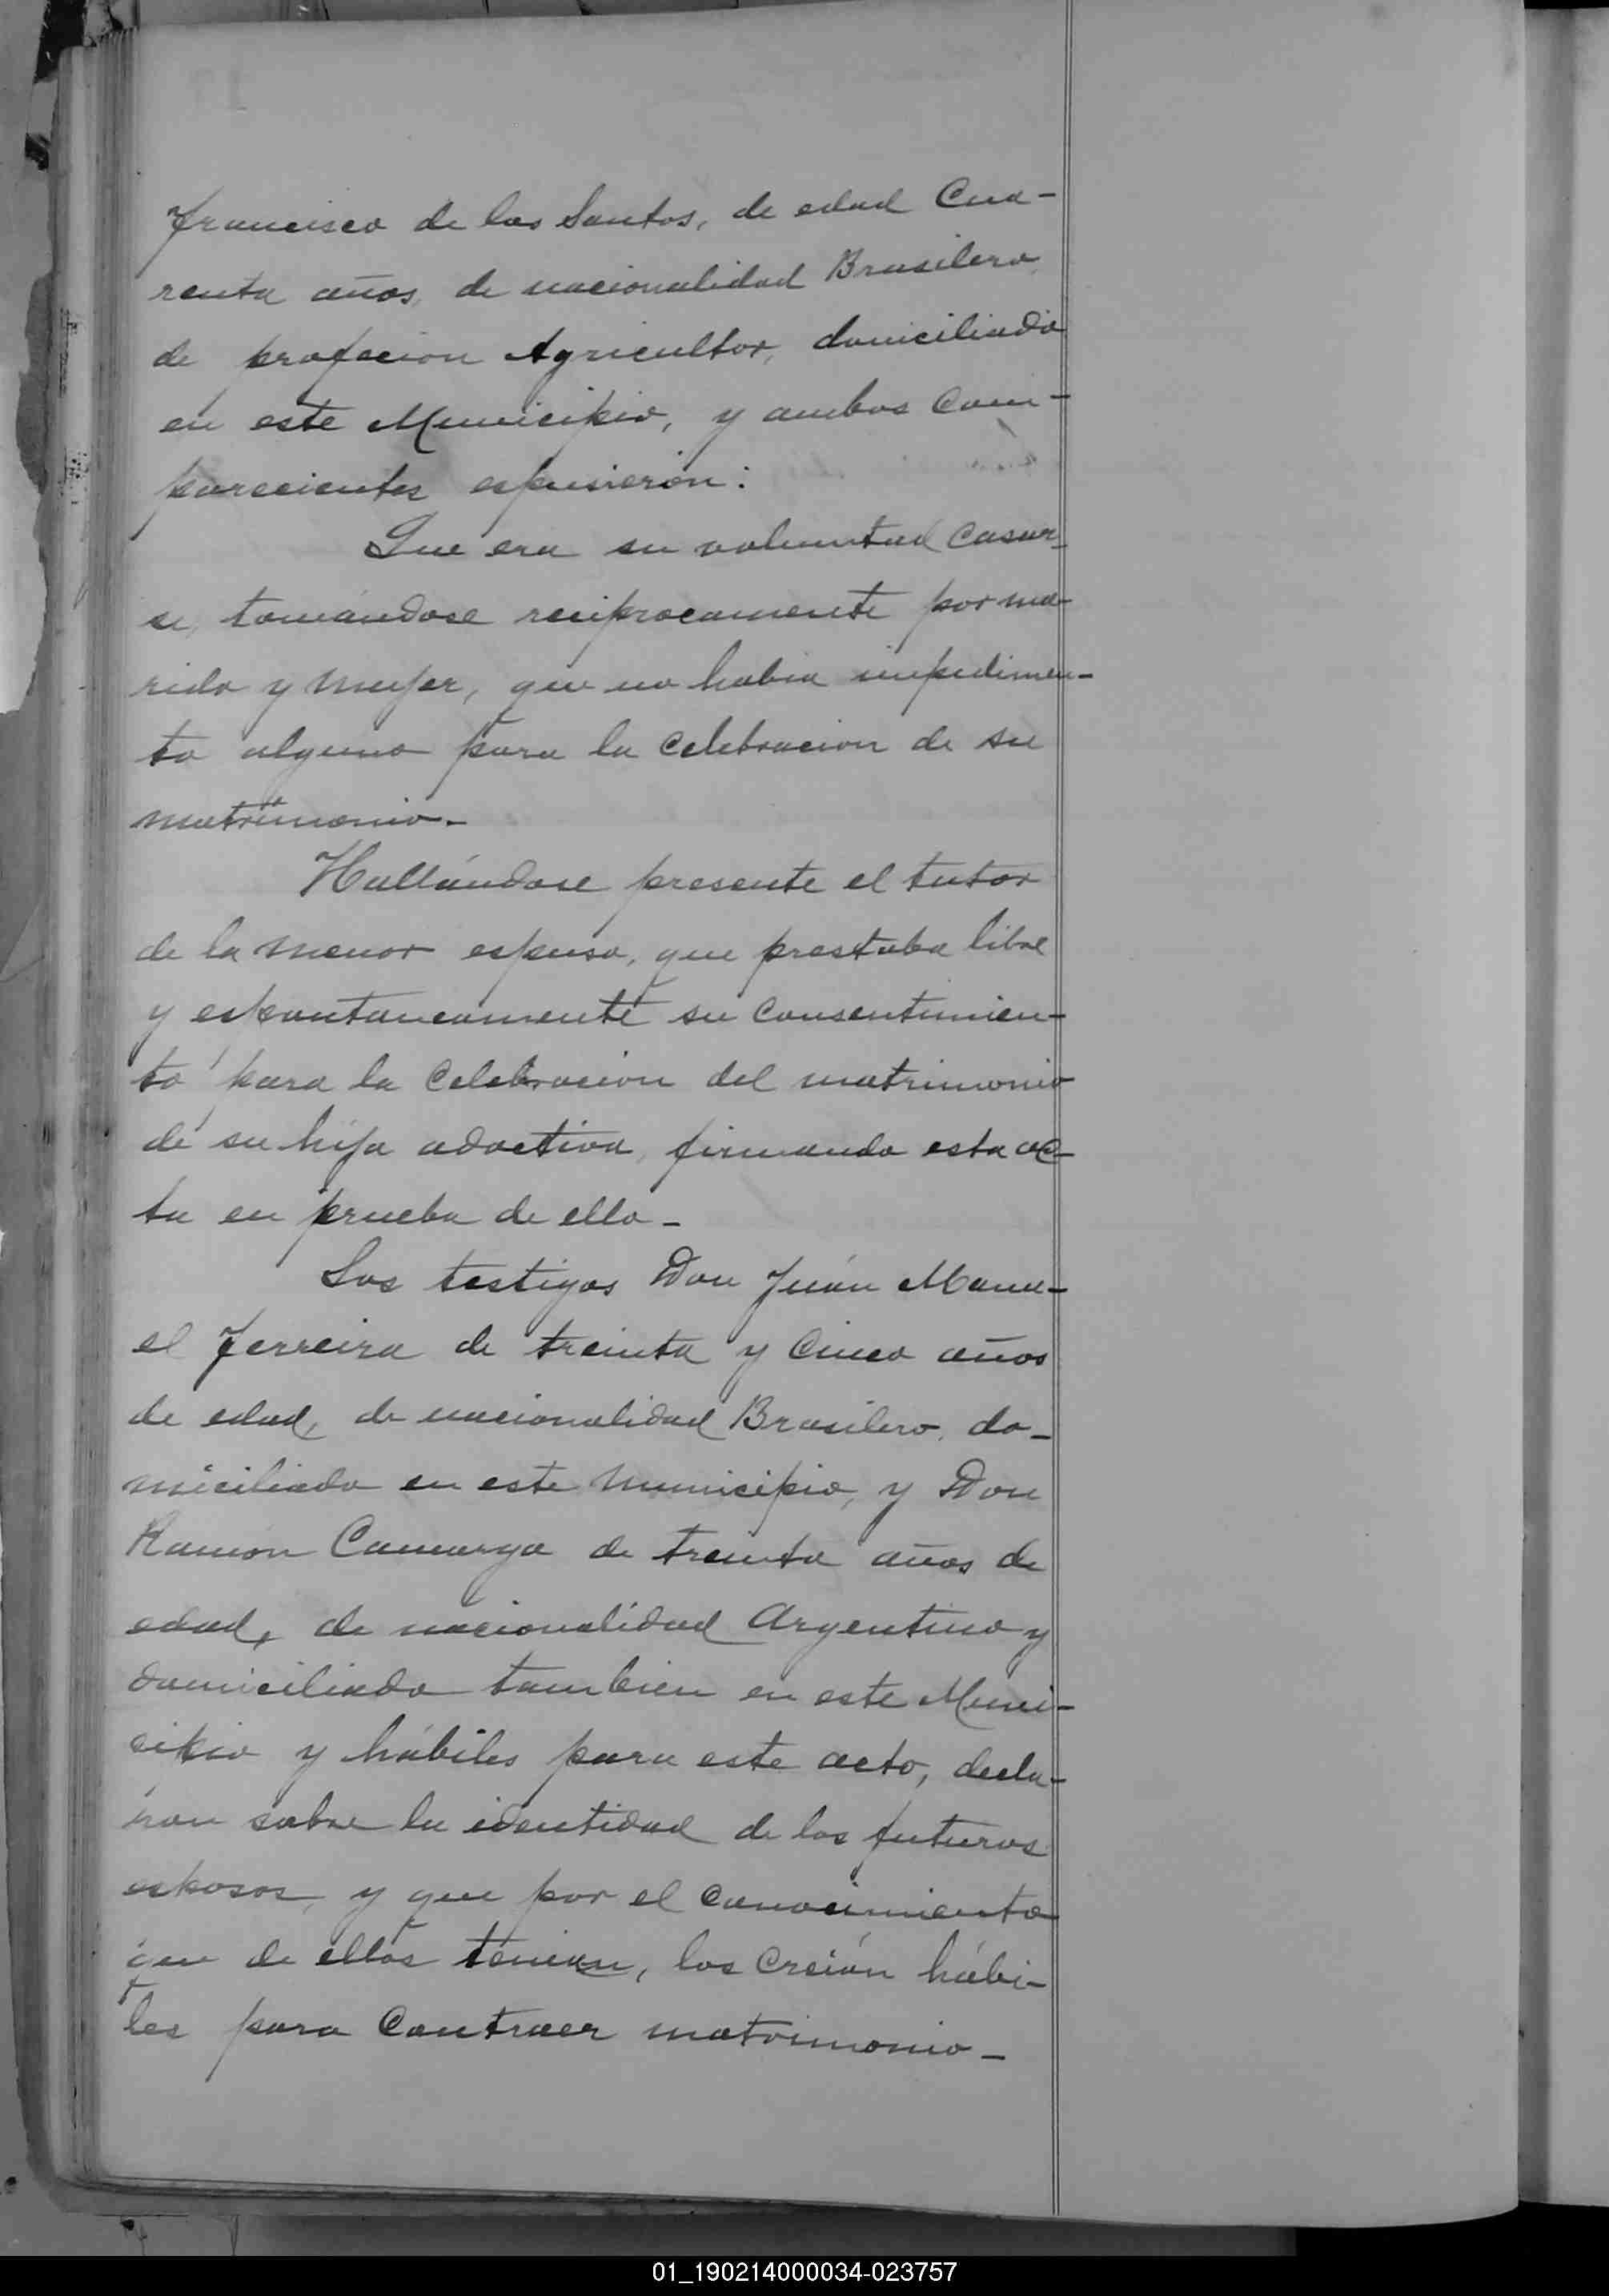 Francisco de los Santos, de edad Cua-
renta años, de nacionalidad Brasilero,
de profecion Agricultor, domiciliado
en este Municipio, y ambos Com-
parecientes espusieron:
Que era su voluntad Casar-
se, tomándose reciprocamente por ma-
rido y mujer, que no habia impedimen-
to alguno para la Celebracion de su
matrimonio.-
Hallándose presente el tutor
de la menor espuso, que prestaba libre
y espontaneamente su Consentimien-
to para la Celebracion del matrimonio
de su hija adoctiva, firmando esta ac-
ta en prueba de ello-
Los testigos Don Juán Manu-
el Ferreira de treinta y Cinco años
de edad, de nacionalidad Brasilero, do-
miciliado en este Municipio, y Don
Ramón Camargo de treinta años de
edad, de nacionalidad Argentino y
domiciliado tambien en este Muni-
cipio y hábiles para este acto, decla-
ron sobre la identidad de los futuros
esposos, y que por el Conocimiento
que de ellos tenian, los Creián hábi-
les para Contraer matrimonio-
01_190214000034-023757